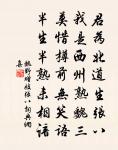 君為北道生張八
我是西州熟魏三
莫怪樽前無笑語
半生半熟未相諳